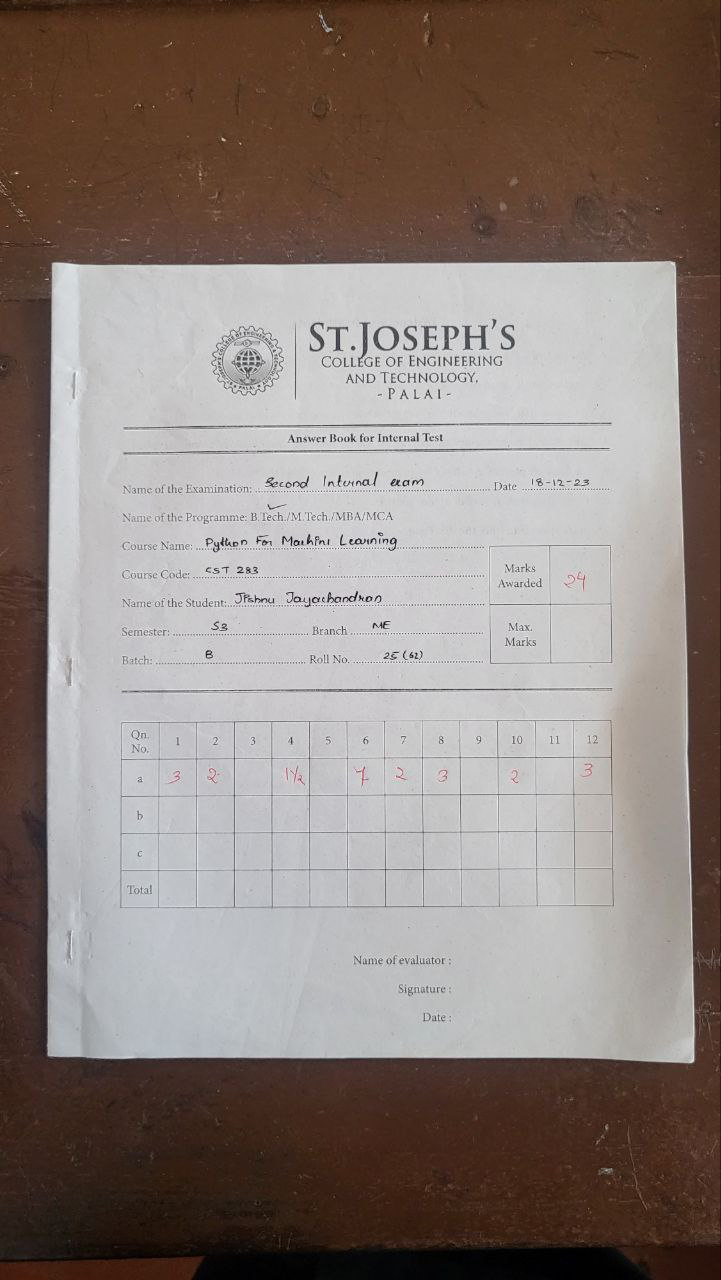 ST.JOSEPH'S
COLLEGE OF ENGINEERING
AND TECHNOLOGY,
- PALAI -
Answer Book for Internal Test
Name of the Examination: Second Internal exam Date 18-12-23
Name of the Programme: B.Tech./M.Tech./MBA/MCA
Course Name: Python For Machine Learning
Course Code: CST 283
Marks Awarded 24
Name of the Student: Jishnu Jayachandran
Semester: S3 Branch ME
Max. Marks
Batch: B Roll No. 25 (62)
Qn. No. 1 2 3 4 5 6 7 8 9 10 11 12
a 3 2 1½ 7 2 3 2 3
b
c
Total
Name of evaluator :
Signature :
Date :